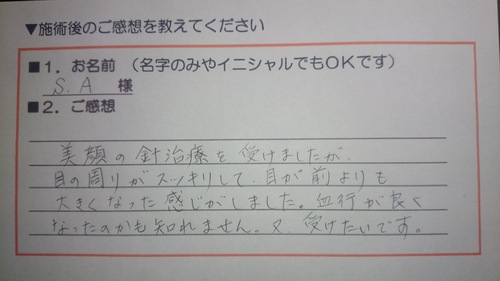 ▼施術後のご感想を教えてください
■1．お名前 （名字のみやイニシャルでもOKです）
S.A 様
■2．ご感想
美顔の針治療を受けましたが、
目の周りがスッキリして、目が前よりも
大きくなった感じがしました。血行が良く
なったのかも知れません。又、受けたいです。